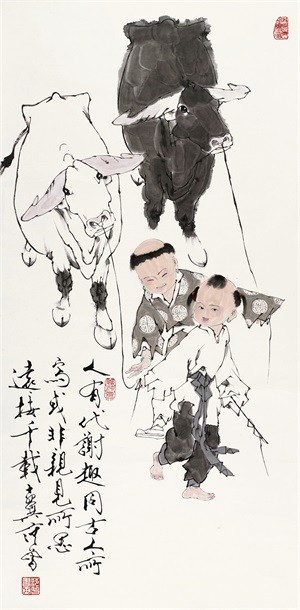 人有代謝趣同古人所
寫或非親見所思
遠接千載十翼范曾